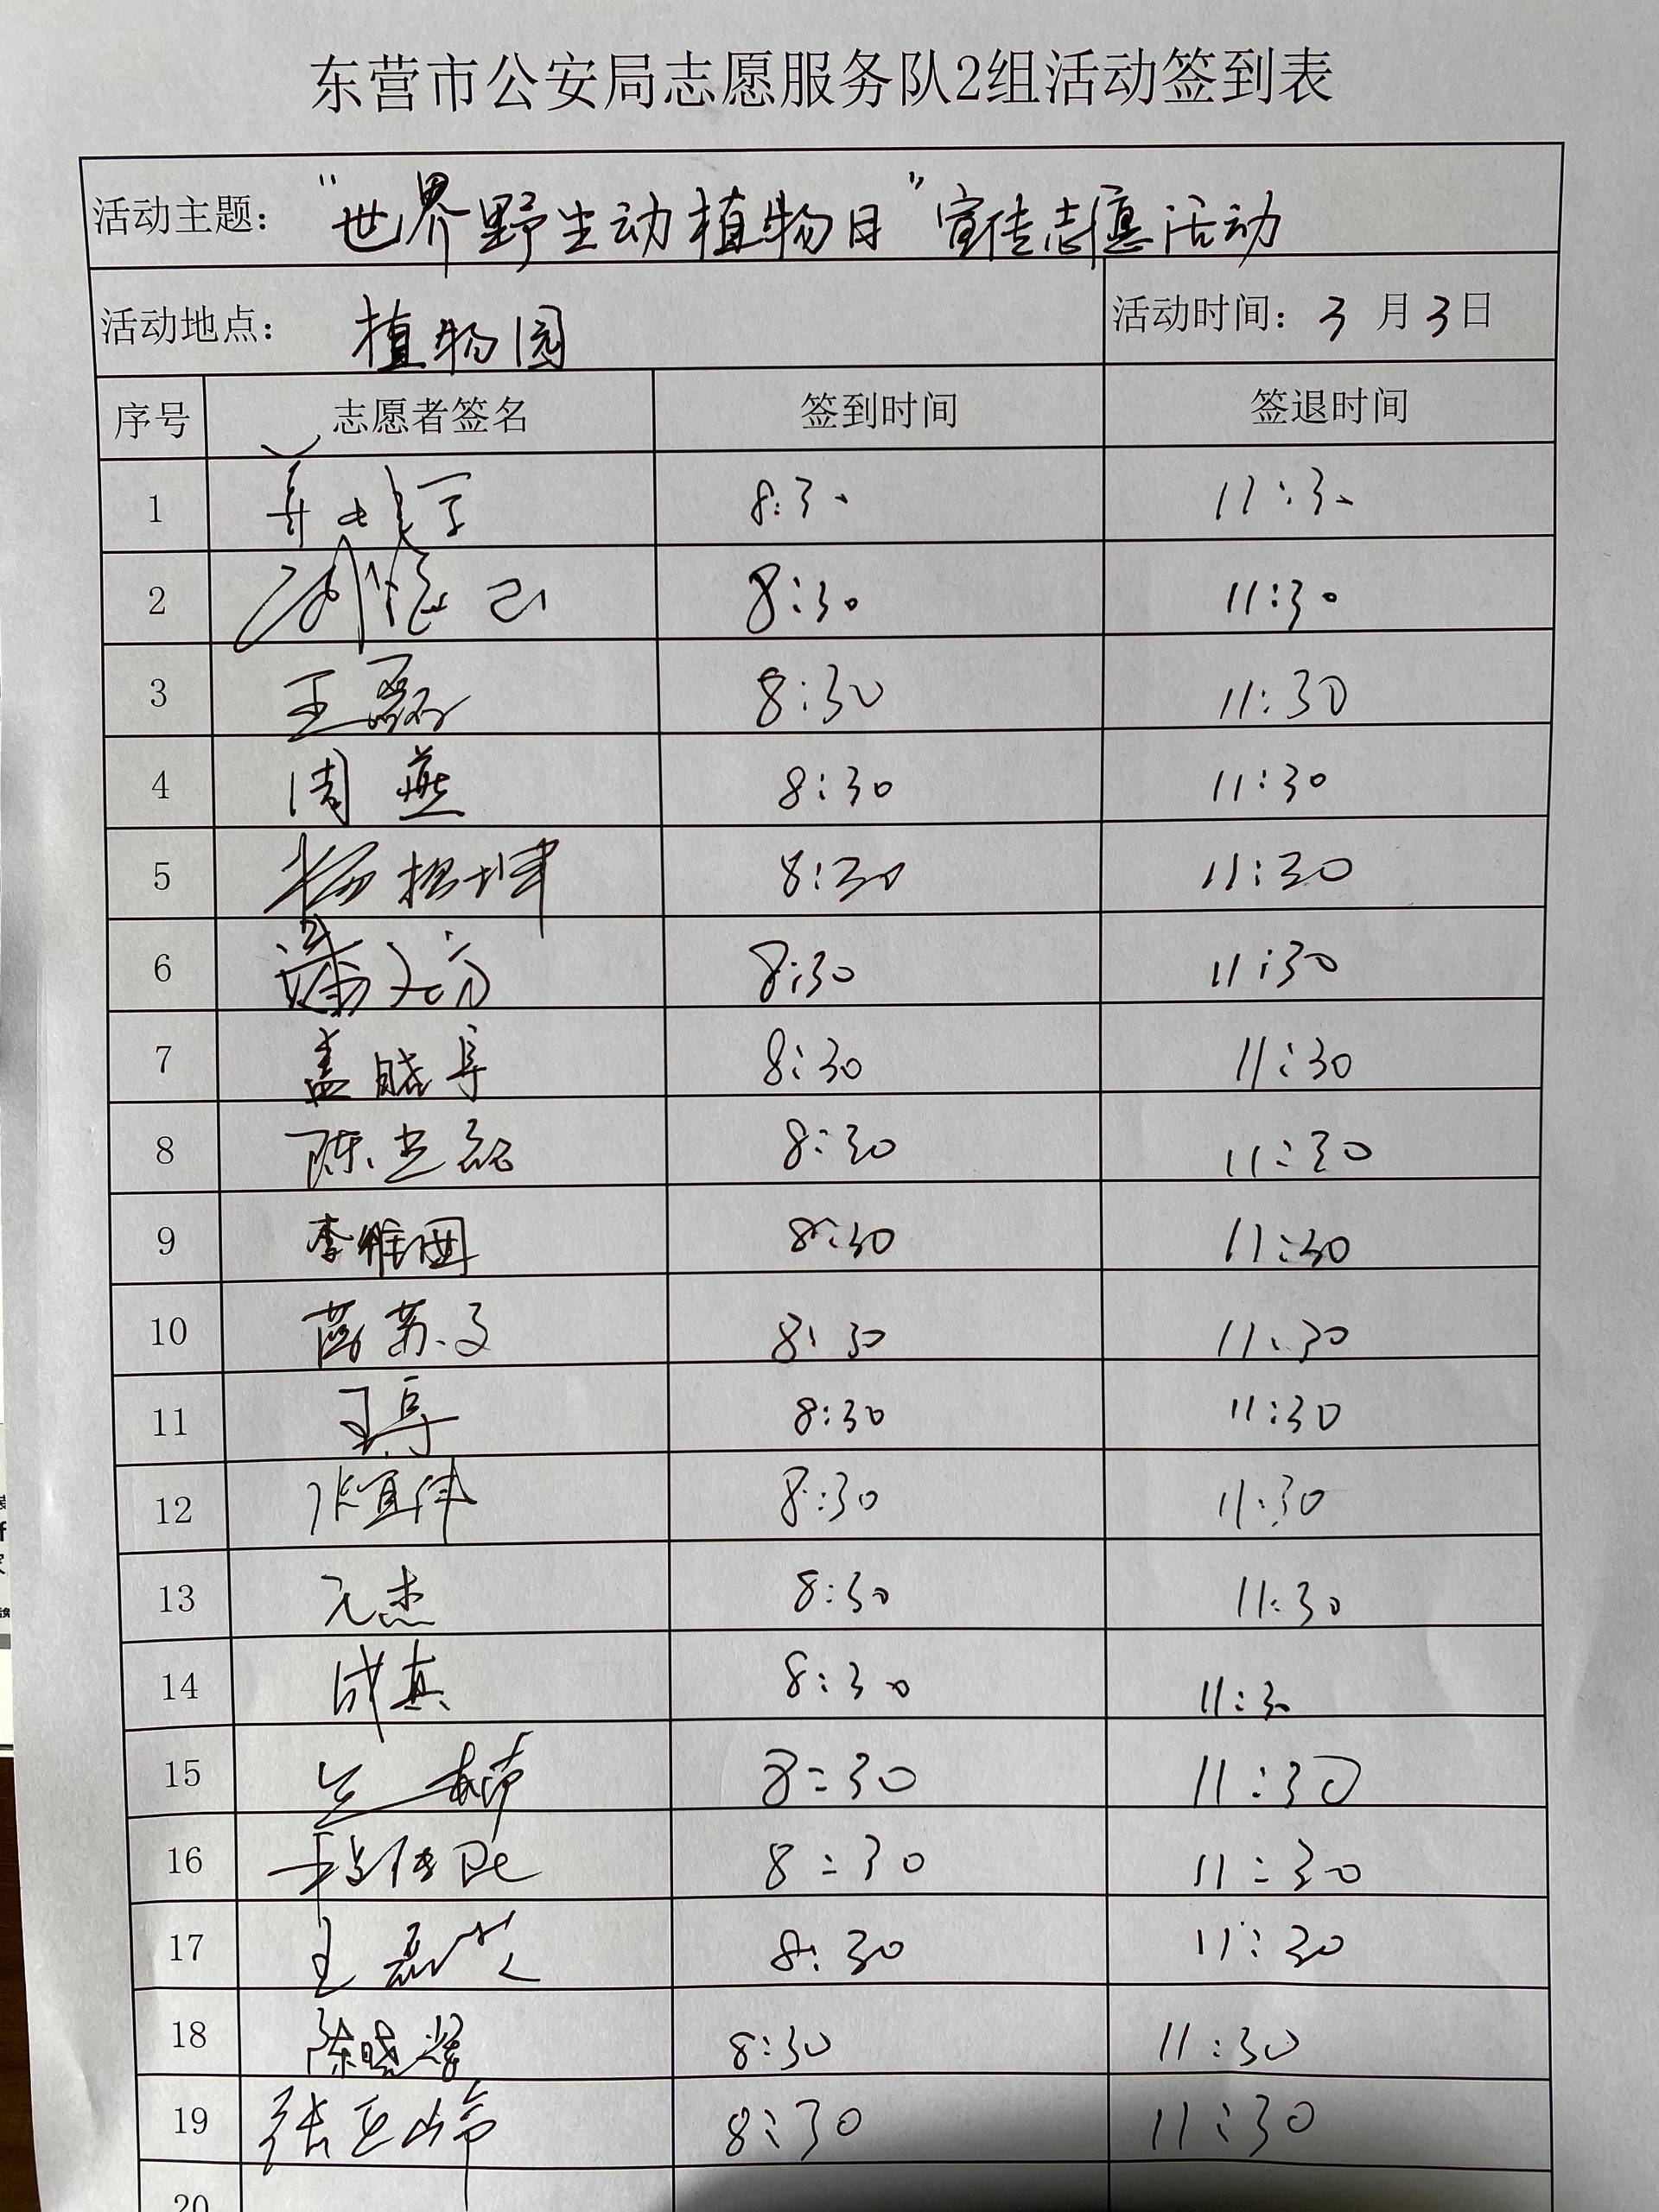 东营市公安局志愿服务队2组活动签到表
活动主题：“世界野生动植物日”宣传志愿活动
活动地点：植物园 活动时间：3月3日
序号 志愿者签名 签到时间 签退时间
1 8:30 11:30
2 8:30 11:30
3 王磊 8:30 11:30
4 周燕 8:30 11:30
5 杨 8:30 11:30
6 潘文方 8:30 11:30
7 盖晓亭 8:30 11:30
8 陈 8:30 11:30
9 李维国 8:30 11:30
10 8:30 11:30
11 王亭 8:30 11:30
12 张宜伟 8:30 11:30
13 亓杰 8:30 11:30
14 成真 8:30 11:30
15 8:30 11:30
16 8:30 11:30
17 王磊 8:30 11:30
18 陈晓 8:30 11:30
19 张亚婷 8:30 11:30
20